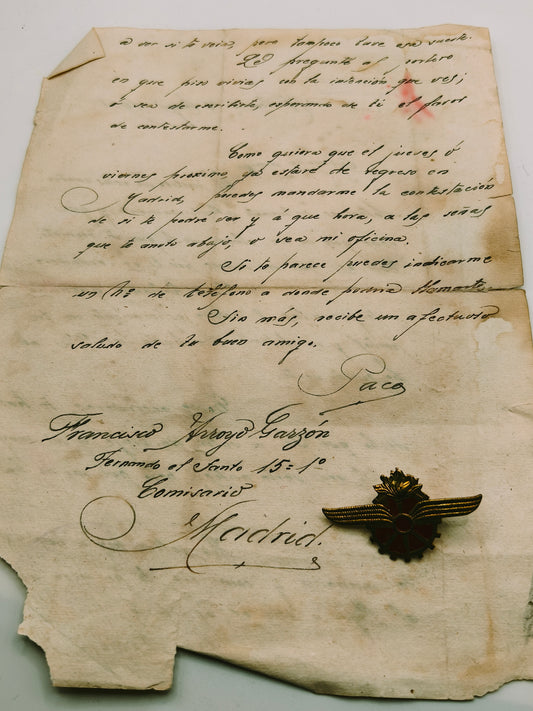 a ver si te veía, pero tampoco tuve esa suerte.
Le pregunté al portero
en que piso vivias con la intención que ves;
ó sea de escribirte, esperando de ti el favor
de contestarme.
Como quiera que el jueves ó
viernes proximo, ya estaré de regreso en
Madrid, puedes mandarme la contestación
de si te podré ver y a que hora, a las señas
que te anoto abajo, o sea mi oficina.
Si te parece puedes indicarme
un Nº de teléfono a donde podria llamarte.
Sin más, recibe un afectuoso
saludo de tu buen amigo.
Paco
Francisco Arroyo Garzón
Fernando el Santo 15=1º
Comisario
Madrid.